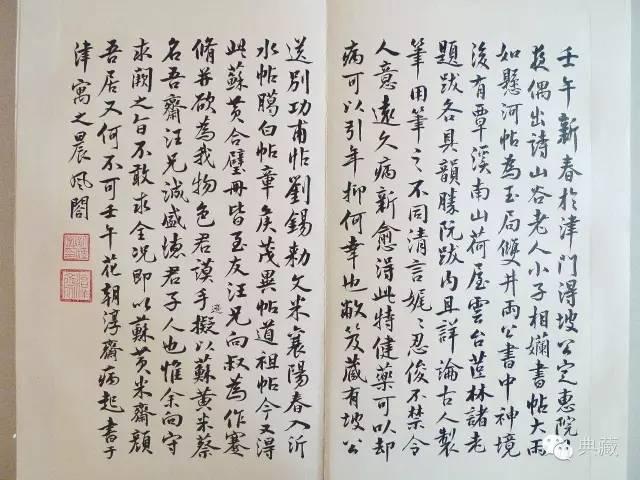 壬午新春於津門得坡公定惠院
夜偶出詩山谷老人小子相嬭書帖大雨
如懸河帖為玉局雙井兩公書中神境
後有覃溪南山荷屋雲台茝林諸老
題跋各具韻勝阮跋内且詳論古人製
筆用筆之不同清言娓〻忍俊不禁令
人意遠久病新愈得此特健藥可以却
病可以引年抑何幸也敝笈藏有坡公
送別功甫帖劉錫勅文米襄陽春入沂
水帖臈白帖章矦茂異帖道祖帖今又得
此蘇黄合璧冊皆至友汪兄向叔為作蹇
脩并欲為我物色君謨手迹擬以蘇黄米蔡
名吾齋汪兄誠盛德君子人也惟余向守
求闕之旨不敢求全况即以蘇黄米齋顔
吾居又何不可壬午花朝淳齋病起書于
津寓之晨風閣
典藏